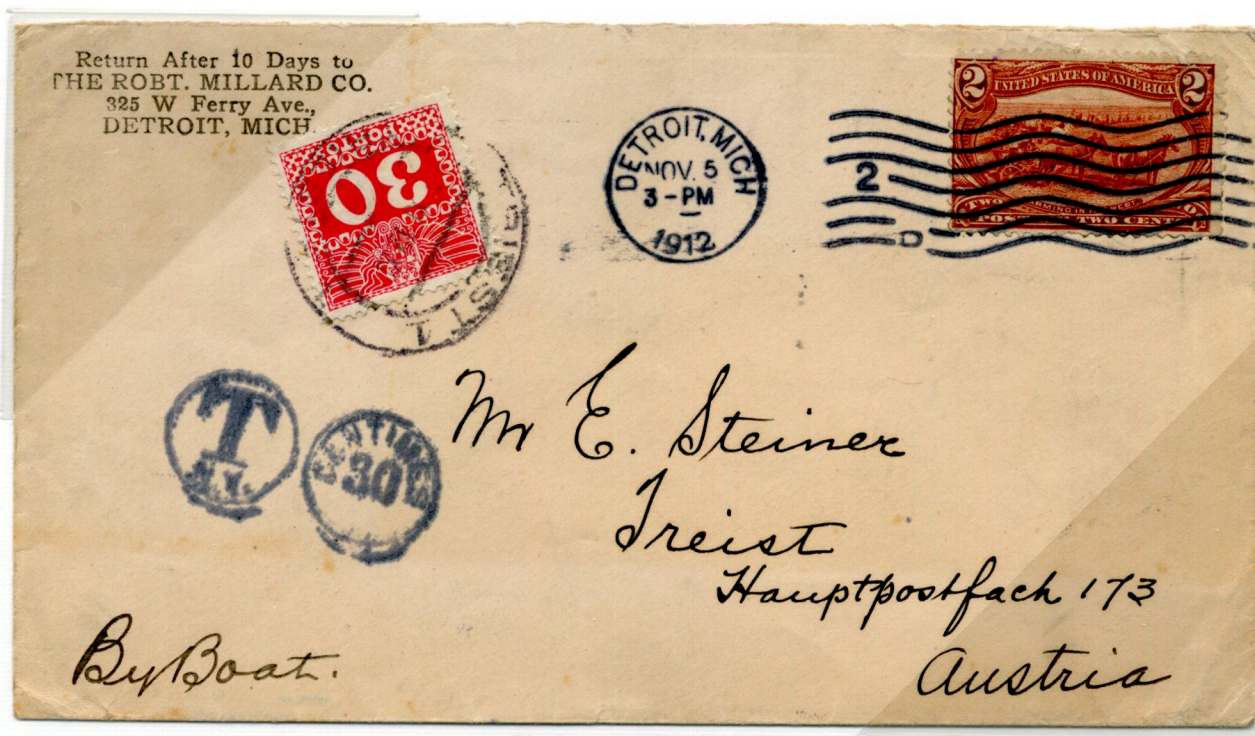 Return After 10 Days to
THE ROBT. MILLARD CO.
325 W Ferry Ave.,
DETROIT, MICH
PORTO
30
TRIEST 1
DETROIT, MICH
NOV. 5
3 - PM
1912
2
D
2 UNITED STATES OF AMERICA 2
TWO
TWO CENTS
T
N.Y.
CENTIMES
30
Mr E. Steiner
Treist
Hauptpostfach 173
Austria
By Boat.